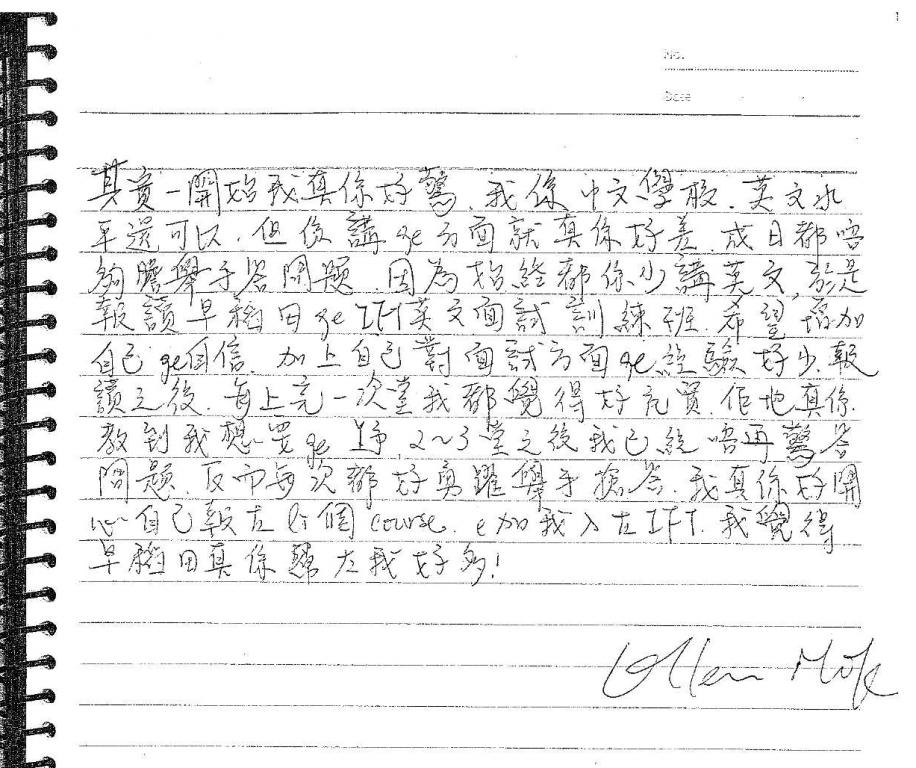 1
No.
Date
其實一開始我真係好驚, 我係中文學校, 英文水
平還可以, 但係講ge方面就真係好差, 成日都唔
夠膽舉手答問題, 因為始終都係少講英文, 於是
報讀早稻田ge IFT英文面試訓練班, 希望增加
自己ge自信, 加上自己對面試方面ge經驗好少, 報
讀之後, 每上完一次堂我都覺得好充實, 佢地真係
教到我想要ge 野, 2~3堂之後我已經唔再驚答
問題, 反而每次都好勇躍舉手搶答, 我真係好開
心自己報左li個course, e加我入左IFT, 我覺得
早稻田真係幫左我好多!